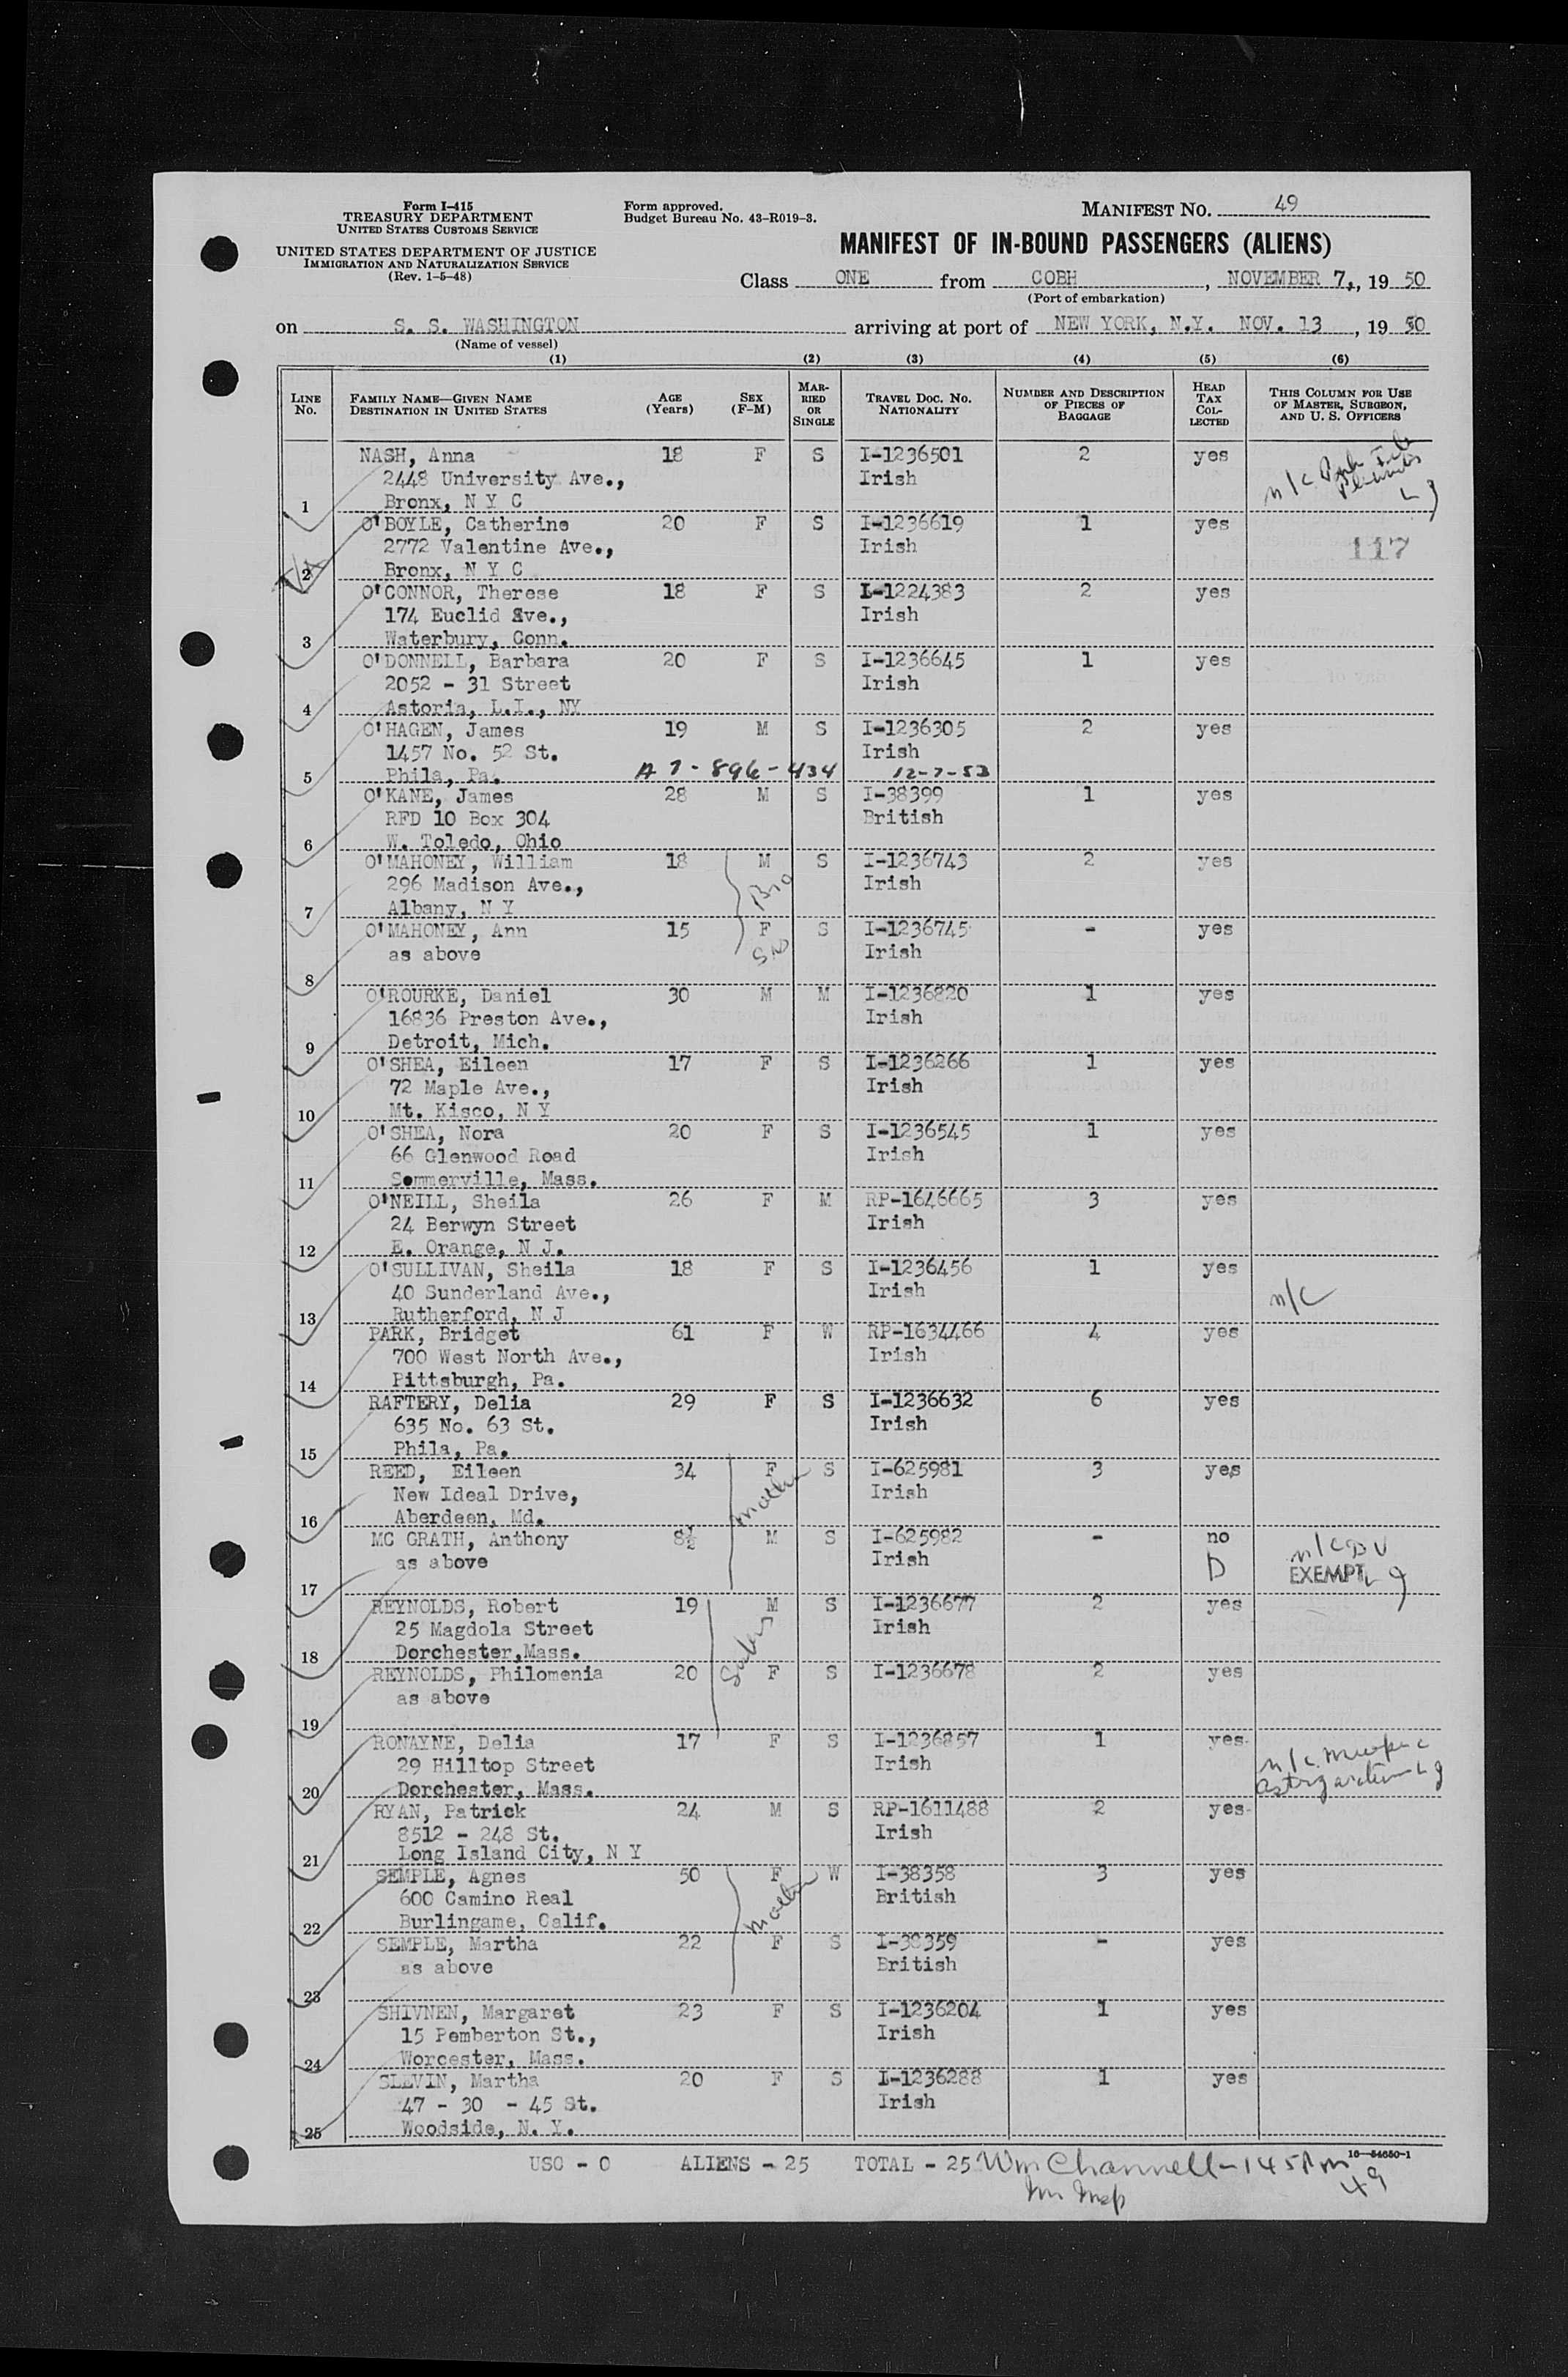 Form I-415
TREASURY DEPARTMENT
UNITED STATES CUSTOMS SERVICE
UNITED STATES DEPARTMENT OF JUSTICE
IMMIGRATION AND NATURALIZATION SERVICE
(Rev. 1-5-48)
Form approved.
Budget Bureau No. 43-R019-3.
MANIFEST NO. 49
MANIFEST OF IN-BOUND PASSENGERS (ALIENS)
Class ONE from COBH, NOVEMBER 7,, 19 50
(Port of embarkation)
on S. S. WASHINGTON arriving at port of NEW YORK, N.Y. NOV. 13, 19 50
(Name of vessel)
(1) (2) (3) (4) (5) (6)
LINE No. FAMILY NAME—GIVEN NAME DESTINATION IN UNITED STATES AGE (Years) SEX (F-M) MARRIED OR SINGLE TRAVEL DOC. NO. NATIONALITY NUMBER AND DESCRIPTION OF PIECES OF BAGGAGE HEAD TAX COLLECTED THIS COLUMN FOR USE OF MASTER, SURGEON, AND U. S. OFFICERS
NASH, Anna 18 F S I-1236501 2 yes n/c
2448 University Ave., Irish
1 Bronx, N Y C
O'BOYLE, Catherine 20 F S I-1236619 1 yes
2772 Valentine Ave., Irish 117
2 Bronx, N Y C
O'CONNOR, Therese 18 F S I-1224383 2 yes
174 Euclid Ave., Irish
3 Waterbury, Conn.
O'DONNELL, Barbara 20 F S I-1236645 1 yes
2052 - 31 Street Irish
4 Astoria, L.I., NY
O'HAGEN, James 19 M S I-1236305 2 yes
1457 No. 52 St. Irish
5 Phila, Pa. A 7-896-434 12-7-53
O'KANE, James 28 M S I-38399 1 yes
RFD 10 Box 304 British
6 W. Toledo, Ohio
O'MAHONEY, William 18 M S I-1236743 2 yes
296 Madison Ave., Bro Irish
7 Albany, N Y
O'MAHONEY, Ann 15 F S I-1236745 - yes
as above Sis Irish
8
O'ROURKE, Daniel 30 M M I-1236820 1 yes
16836 Preston Ave., Irish
9 Detroit, Mich.
O'SHEA, Eileen 17 F S I-1236266 1 yes
72 Maple Ave., Irish
10 Mt. Kisco, N Y
O'SHEA, Nora 20 F S I-1236545 1 yes
66 Glenwood Road Irish
11 Sommerville, Mass.
O'NEILL, Sheila 26 F M RP-1646665 3 yes
24 Berwyn Street Irish
12 E. Orange, N J.
O'SULLIVAN, Sheila 18 F S I-1236456 1 yes
40 Sunderland Ave., Irish n/c
13 Rutherford, N J
PARK, Bridget 61 F W RP-1634466 4 yes
700 West North Ave., Irish
14 Pittsburgh, Pa.
RAFTERY, Delia 29 F S I-1236632 6 yes
635 No. 63 St. Irish
15 Phila, Pa.
REED, Eileen 34 F S I-625981 3 yes
New Ideal Drive, Mother Irish
16 Aberdeen, Md.
MC GRATH, Anthony 8½ M S I-625982 - no n/c
as above Irish D EXEMPT
17
REYNOLDS, Robert 19 M S I-1236677 2 yes
25 Magdola Street Irish
18 Dorchester,Mass.
REYNOLDS, Philomenia 20 F S I-1236678 2 yes
as above
19
RONAYNE, Delia 17 F S I-1236857 1 yes
29 Hilltop Street Irish n/c
20 Dorchester, Mass.
RYAN, Patrick 24 M S RP-1611488 2 yes
8512 - 248 St. Irish
21 Long Island City, N Y
SEMPLE, Agnes 50 F W I-38358 3 yes
600 Camino Real Mother British
22 Burlingame, Calif.
SEMPLE, Martha 22 F S I-38359 - yes
as above British
23
SHIVNEN, Margaret 23 F S I-1236204 1 yes
15 Pemberton St., Irish
24 Worcester, Mass.
SLEVIN, Martha 20 F S I-1236288 1 yes
47 - 30 - 45 St. Irish
25 Woodside, N. Y.
16-54650-1
USC - 0 ALIENS - 25 TOTAL - 25 Wm Channell - 145 Pm
49